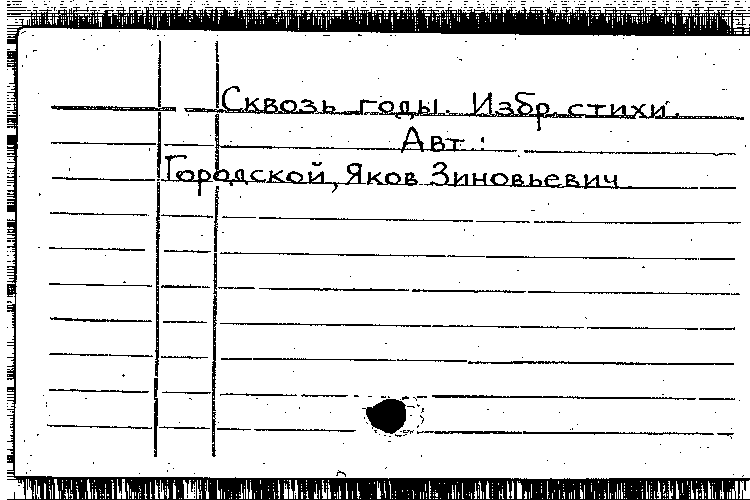 Сквозь годы. Избр. стихи.
Авт.:
Городской, Яков Зиновьевич